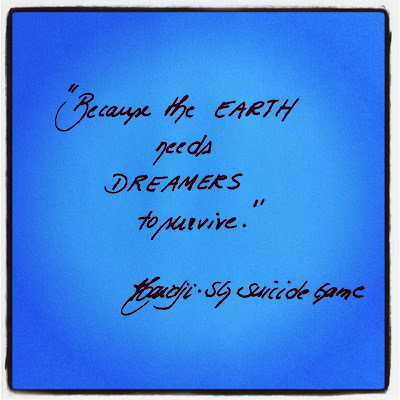 "Because the EARTH
needs
DREAMERS
to survive."
suicide Game